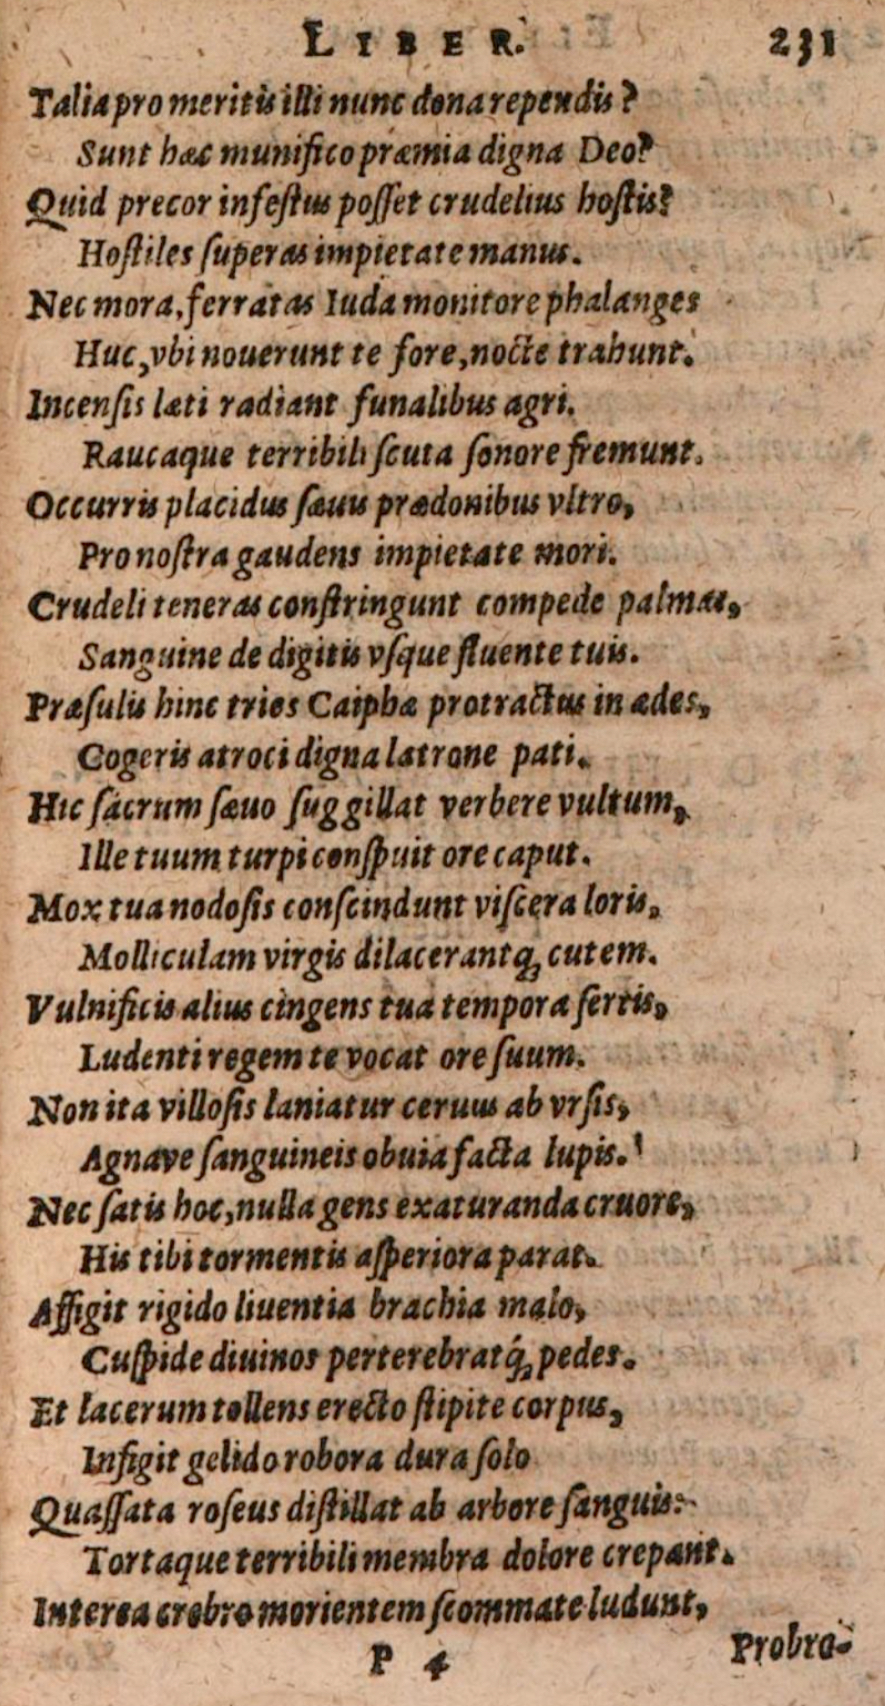 LIBER. 231
Talia pro meritis illi nunc dona rependis?
Sunt hæc munifico præmia digna Deo?
Quid precor infestus posset crudelius hostis?
Hostiles superas impietate manus.
Nec mora, ferratas Iuda monitore phalanges
Huc, vbi nouerunt te fore, nocte trahunt.
Incensis læti radiant funalibus agri.
Raucaque terribili scuta sonore fremunt.
Occurris placidus sæuis prædonibus vltro,
Pro nostra gaudens impietate mori.
Crudeli teneras constringunt compede palmas,
Sanguine de digitis vsque fluente tuis.
Præsulis hinc tries Caiphæ protractus in ædes,
Cogeris atroci digna latrone pati.
Hic sacrum sæuo suggillat verbere vultum,
Ille tuum turpi conspuit ore caput.
Mox tua nodosis conscindunt viscera loris,
Molliculam virgis dilacerantq́; cutem.
Vulnificis alius cingens tua tempora sertis,
Ludenti regem te vocat ore suum.
Non ita villosis laniatur ceruus ab vrsis,
Agnave sanguineis obuia facta lupis.
Nec satis hoc, nulla gens exaturanda cruore,
His tibi tormentis asperiora parat.
Affigit rigido liuentia brachia malo,
Cuspide diuinos perterebratq́; pedes.
Et lacerum tollens erecto stipite corpus,
Infigit gelido robora dura solo
Quassata roseus distillat ab arbore sanguis:
Tortaque terribili membra dolore crepant.
Interea crebro morientem scommate ludunt,
P 4 Probra-